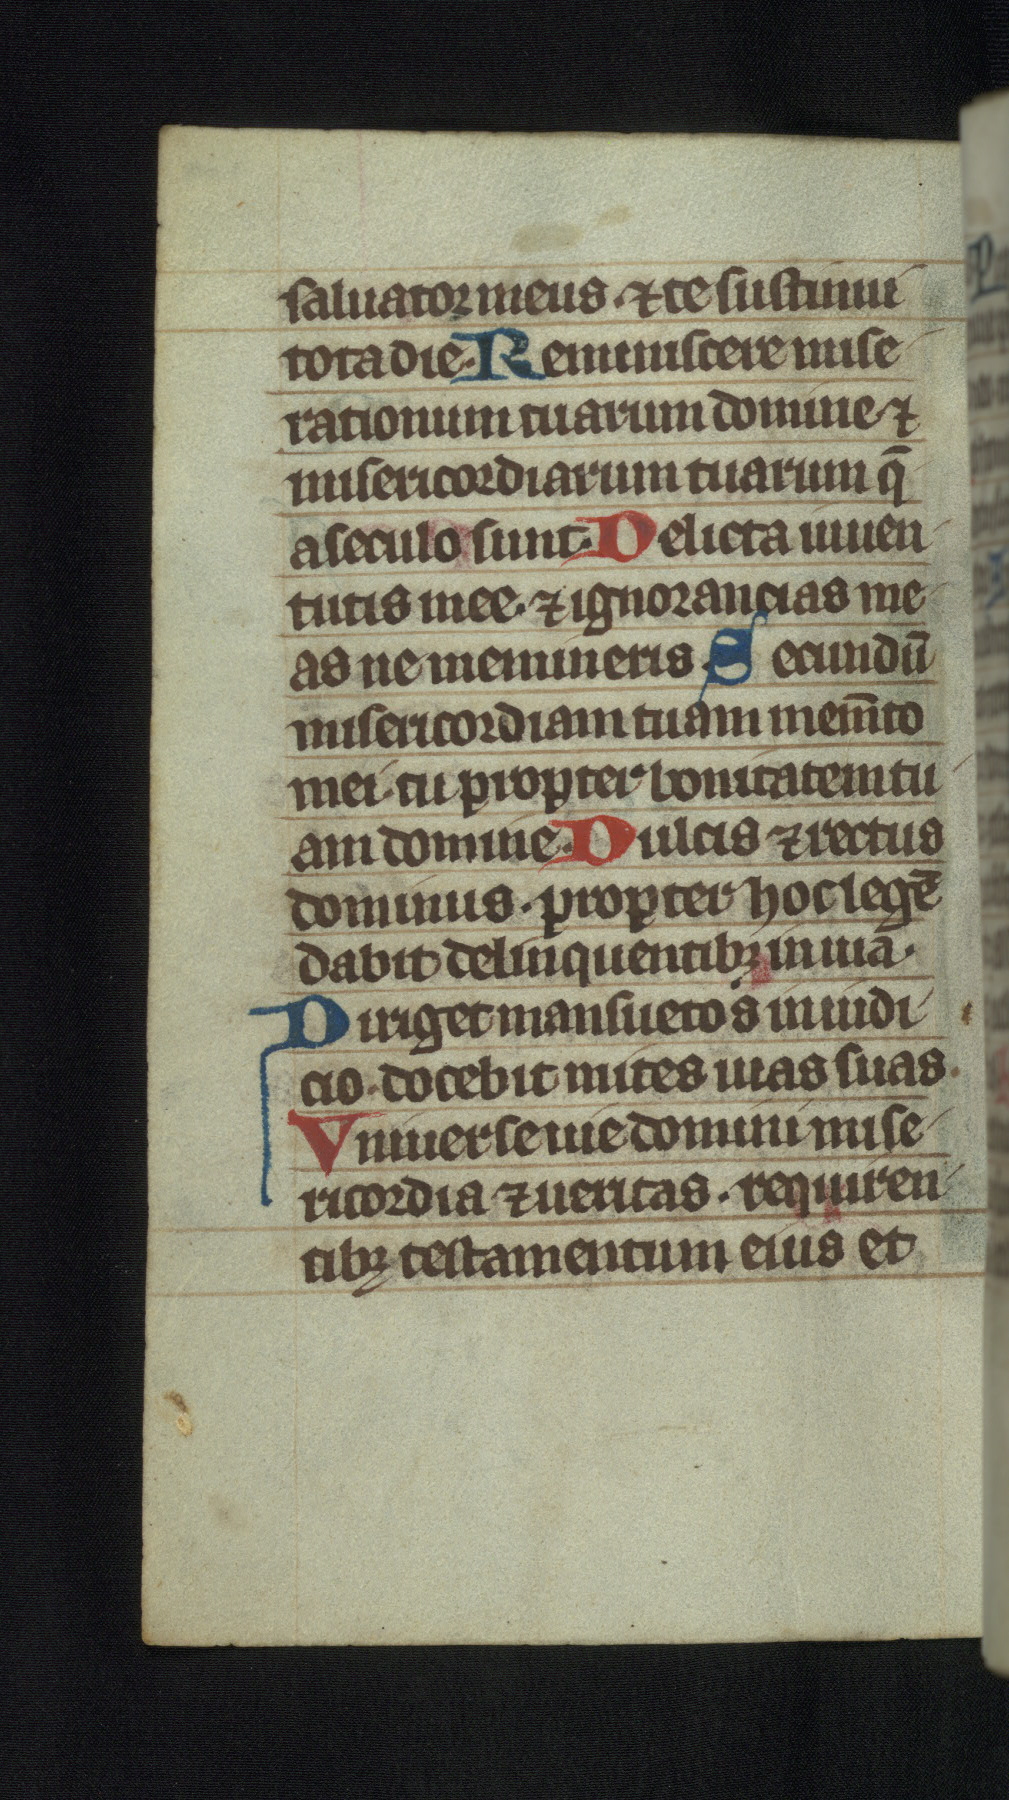 saluator meus · ⁊ te sustinui
tota die · Reminiscere mise
rationum tuarum domine ⁊
misericordiarum tuarum q̄
a seculo sunt · Delicta iuuen
tutis mee · ⁊ ignorancias me
as ne memineris · Secundū
misericordiam tuam mem̄to
mei · tu propter bonitatem tu
am domine · Dulcis ⁊ rectus
dominus · propter hoc legē
dabit delinquentibꝫ in uiā ·
Diriget mansuetos in iudi
cio · docebit mites uias suas ·
Vniuerse uie domini mise
ricordia ⁊ ueritas · requiren
tibꝫ testamentum eius et